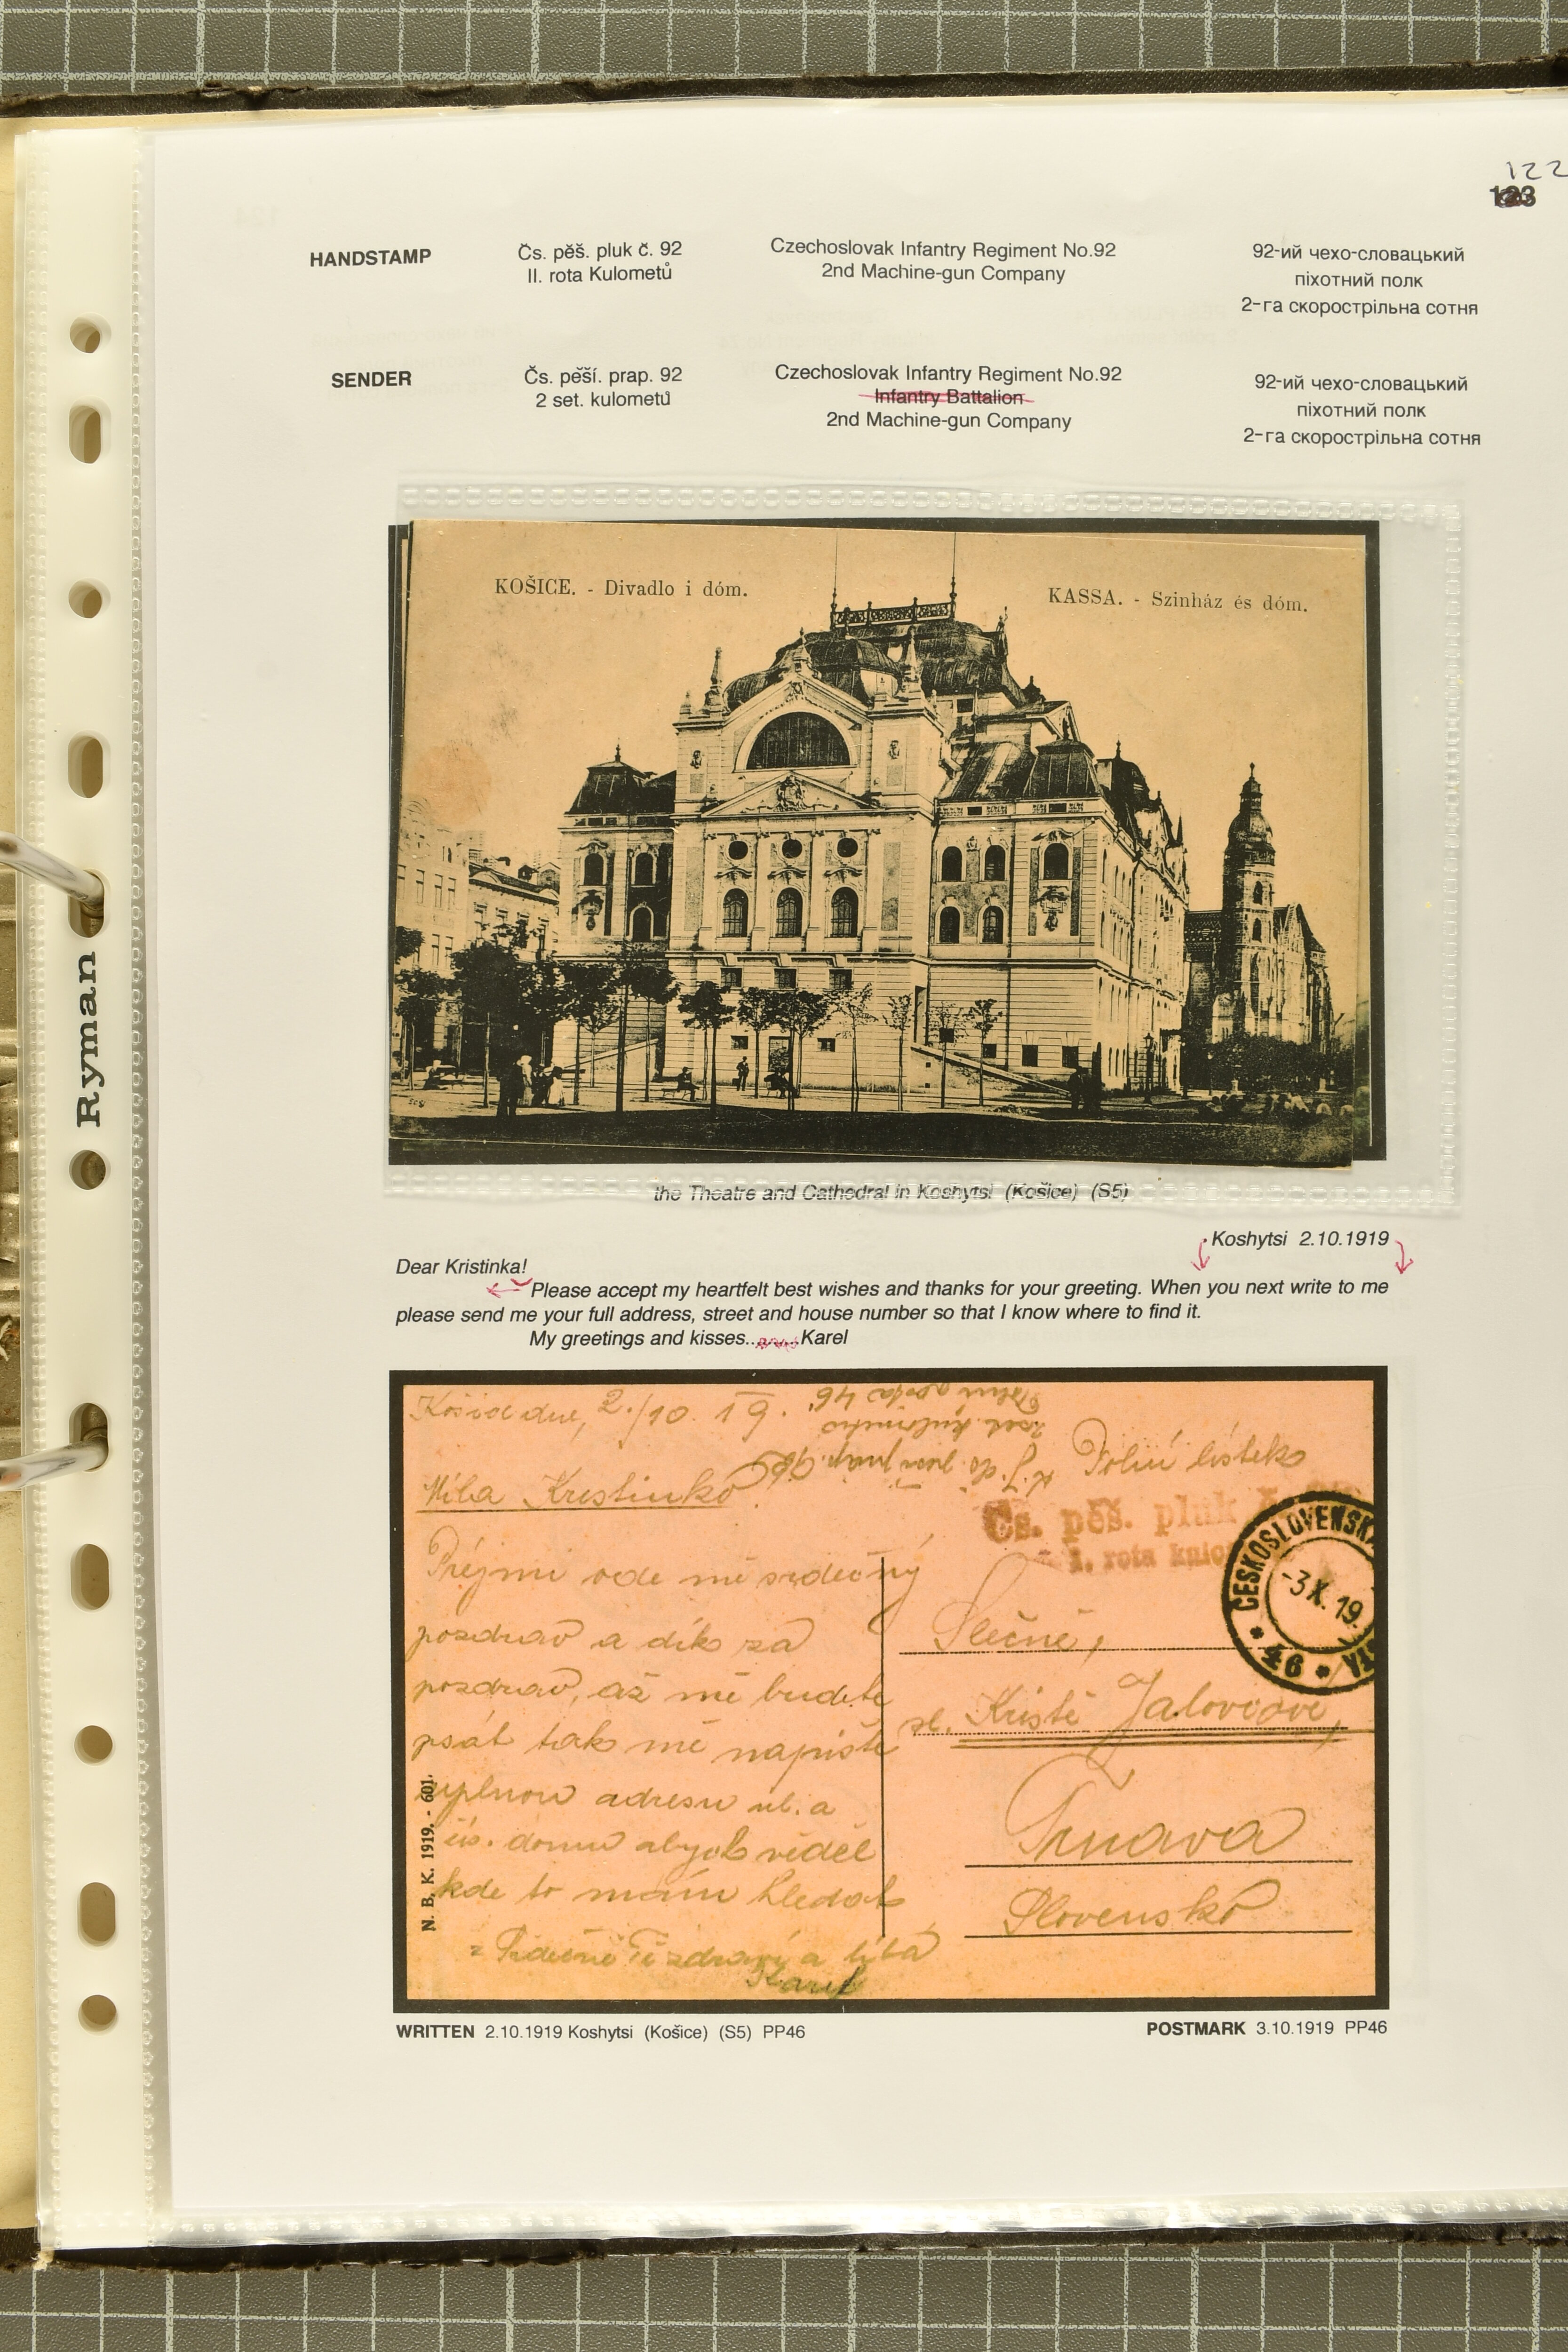 122
123
HANDSTAMP
Čs. pěš. pluk č. 92
II. rota Kulometů
Czechoslovak Infantry Regiment No.92
2nd Machine-gun Company
92-ий чехо-словацький
піхотний полк
2-га скорострільна сотня
SENDER
Čs. pěší. prap. 92
2 set. kulometů
Czechoslovak Infantry Regiment No.92
Infantry Battalion
2nd Machine-gun Company
92-ий чехо-словацький
піхотний полк
2-га скорострільна сотня
KOŠICE. - Divadlo i dóm.
KASSA. - Szinház és dóm.
Ryman
the Theatre and Cathedral in Koshytsi (Košice) (S5)
Koshytsi 2.10.1919
Dear Kristinka!
Please accept my heartfelt best wishes and thanks for your greeting. When you next write to me
please send me your full address, street and house number so that I know where to find it.
My greetings and kisses.........Karel
Košice dne, 2./10. 19.
Polní pošta 46
2 set. kulometů
K. J. čs. pěší prap. 92
Polní lístek
Milá Kristinko!
Čs. pěš. pluk
rota kulo
ČESKOSLOVENSK
-3 X. 19
* 46 *
Přejmi ode mě srdečný
pozdrav a dík za
pozdrav, až mě budete
psát tak mě napiště
uplnou adresu ul. a
čís. domu abych věděl
kde to mám hledat
Srdečně Tě zdraví a líbá
Karel
Slečně,
sl. Kristě Jalovcové,
Trnava
Slovensko
N. B. K. 1919. - 601.
WRITTEN 2.10.1919 Koshytsi (Košice) (S5) PP46
POSTMARK 3.10.1919 PP46